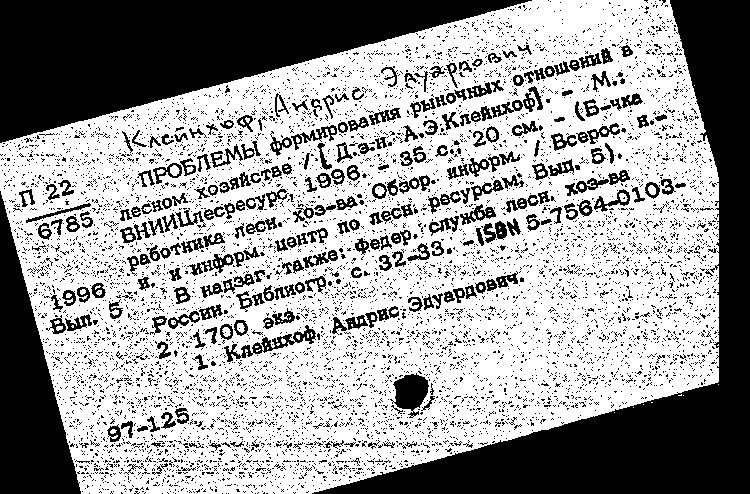 Клейнхоф, Андрис Эдуардович
ПРОБЛЕМЫ формирования рыночных отношений в
лесном хозяйстве / [Д.э.н. А.Э.Клейнхоф]. - М.:
ВНИИЦлесресурс, 1996. - 35 с.; 20 см. - (Б-чка
работника лесн. хоз-ва: Обзор. информ. / Всерос. н.-
и. и информ. центр по лесн. ресурсам; Вып. 5).
В надзаг. также: Федер. служба лесн. хоз-ва
России. Библиогр.: с. 32-33. - ISBN 5-7564-0103-
2. 1700 экз.
1. Клейнхоф, Андрис Эдуардович.
П 22
6785
1996
Вып. 5
97-125